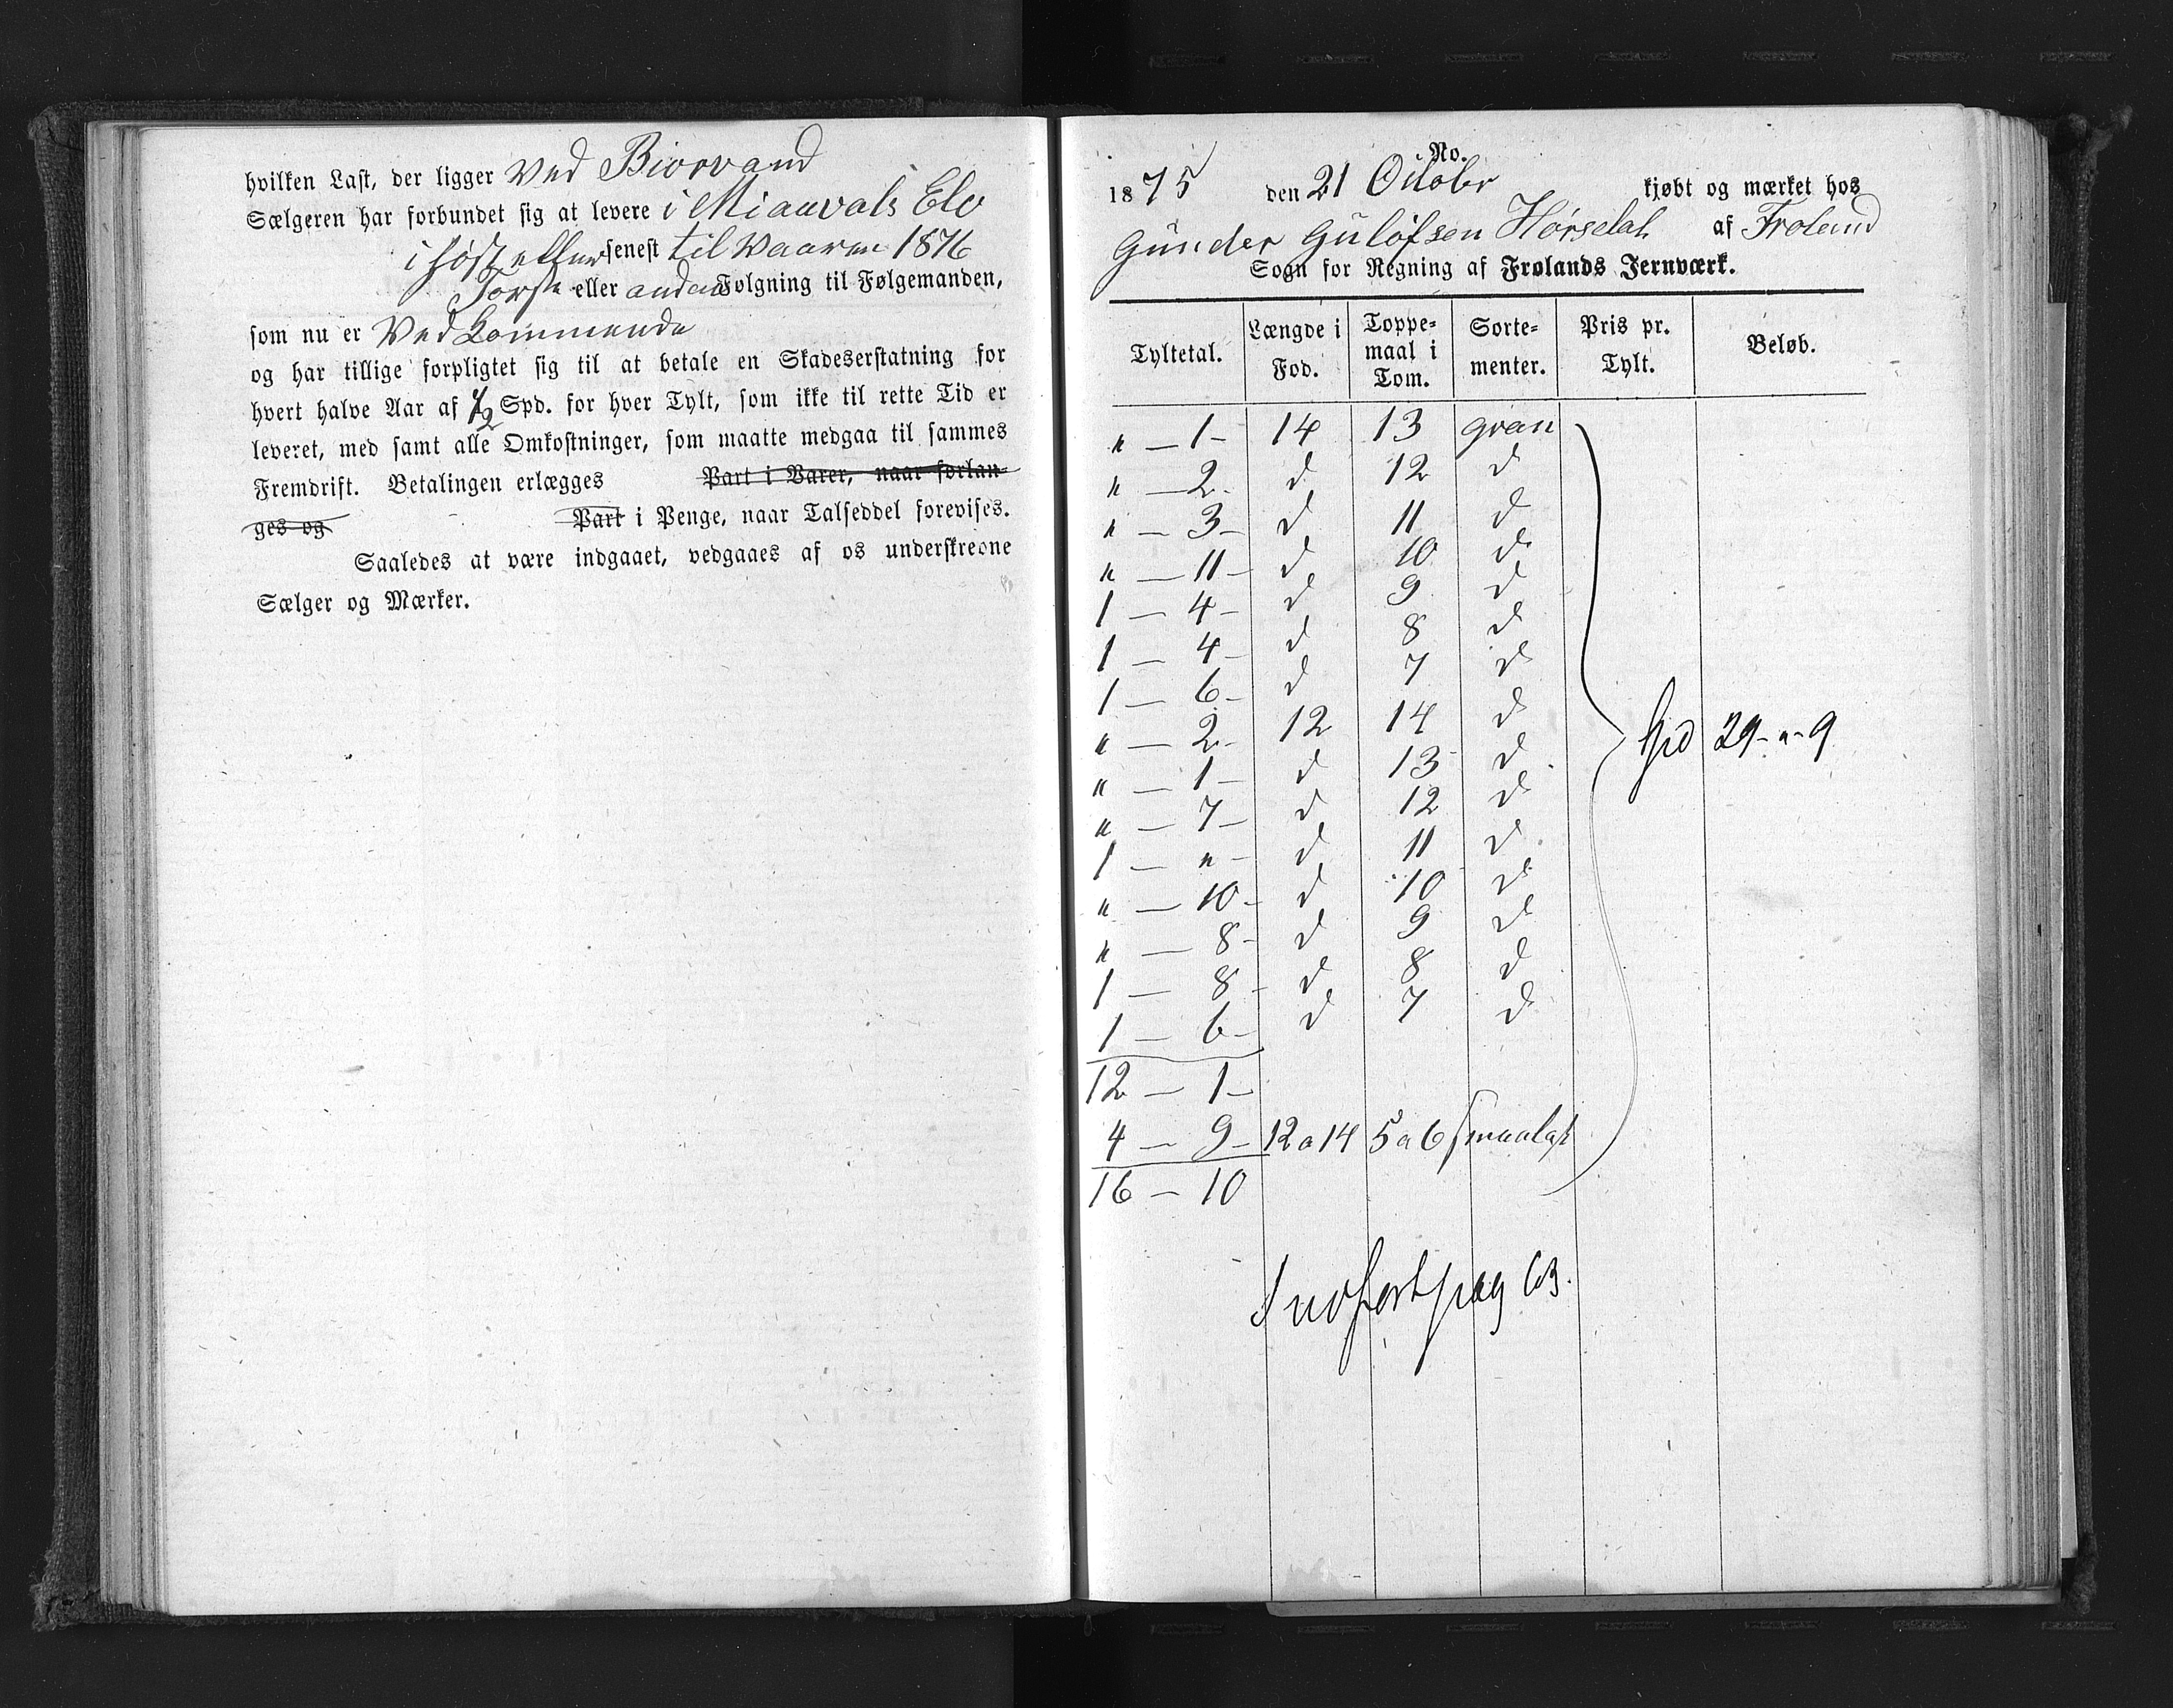 hvilken Last, der ligger ved Biorvand
Sælgeren har forbundet sig at levere i Miauvals Elv
i høst eller senest til Vaaren 1876
Første eller anden Følgning til Følgemanden,
som nu er Vedkommende
og har tillige forpligtet sig til at betale en Skadeserstatning for
hvert halve Aar af 1/2 Spd. for hver Tylt, som ikke til rette Tid er
leveret, med samt alle Omkostninger, som maatte medgaa til sammes
Fremdrift. Betalingen erlægges Part i Varer, naar forlan-
ges og Part i Penge, naar Talseddel forevises.
Saaledes at være indgaaet, vedgaaes af os underskrevne
Sælger og Mærker.
No.
1875 den 21 Octobr kjøbt og mærket hos
Gunder Gulofsen Hørsdal af Froland
Sogn for Regning af Frolands Jernværk.
Tyltetal. Længde i Fod. Toppe-maal i Tom. Sorte-menter. Pris pr. Tylt. Beløb.
" — 1 — 14 13 gran
" — 2 — d 12 d
" — 3 — d 11 d
" — 11 — d 10 d
1 — 4 — d 9 d
1 — 4 — d 8 d
1 — 6 — d 7 d
" — 2 — 12 14 d
" — 1 — d 13 d
" — 7 — d 12 d
1 — " — d 11 d
" — 10 — d 10 d
" — 8 — d 9 d
1 — 8 — d 8 d
1 — 6 — d 7 d
29 - " - 9
12 — 1 —
4 — 9 — 12 a 14 5 a 6 smaalast
16 — 10
Indført pag 63.